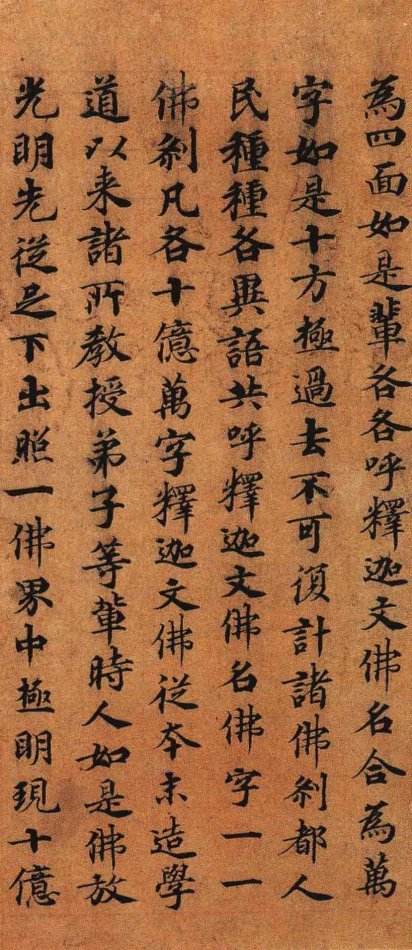 為四面如是輩各各呼釋迦文佛名合為萬
字如是十方極過去不可復計諸佛剎都人
民種種各異語共呼釋迦文佛名佛字一一
佛剎凡各十億萬字釋迦文佛從本末造學
道以来諸所教授弟子等輩時人如是佛放
光明先從足下出照一佛界中極明現十億